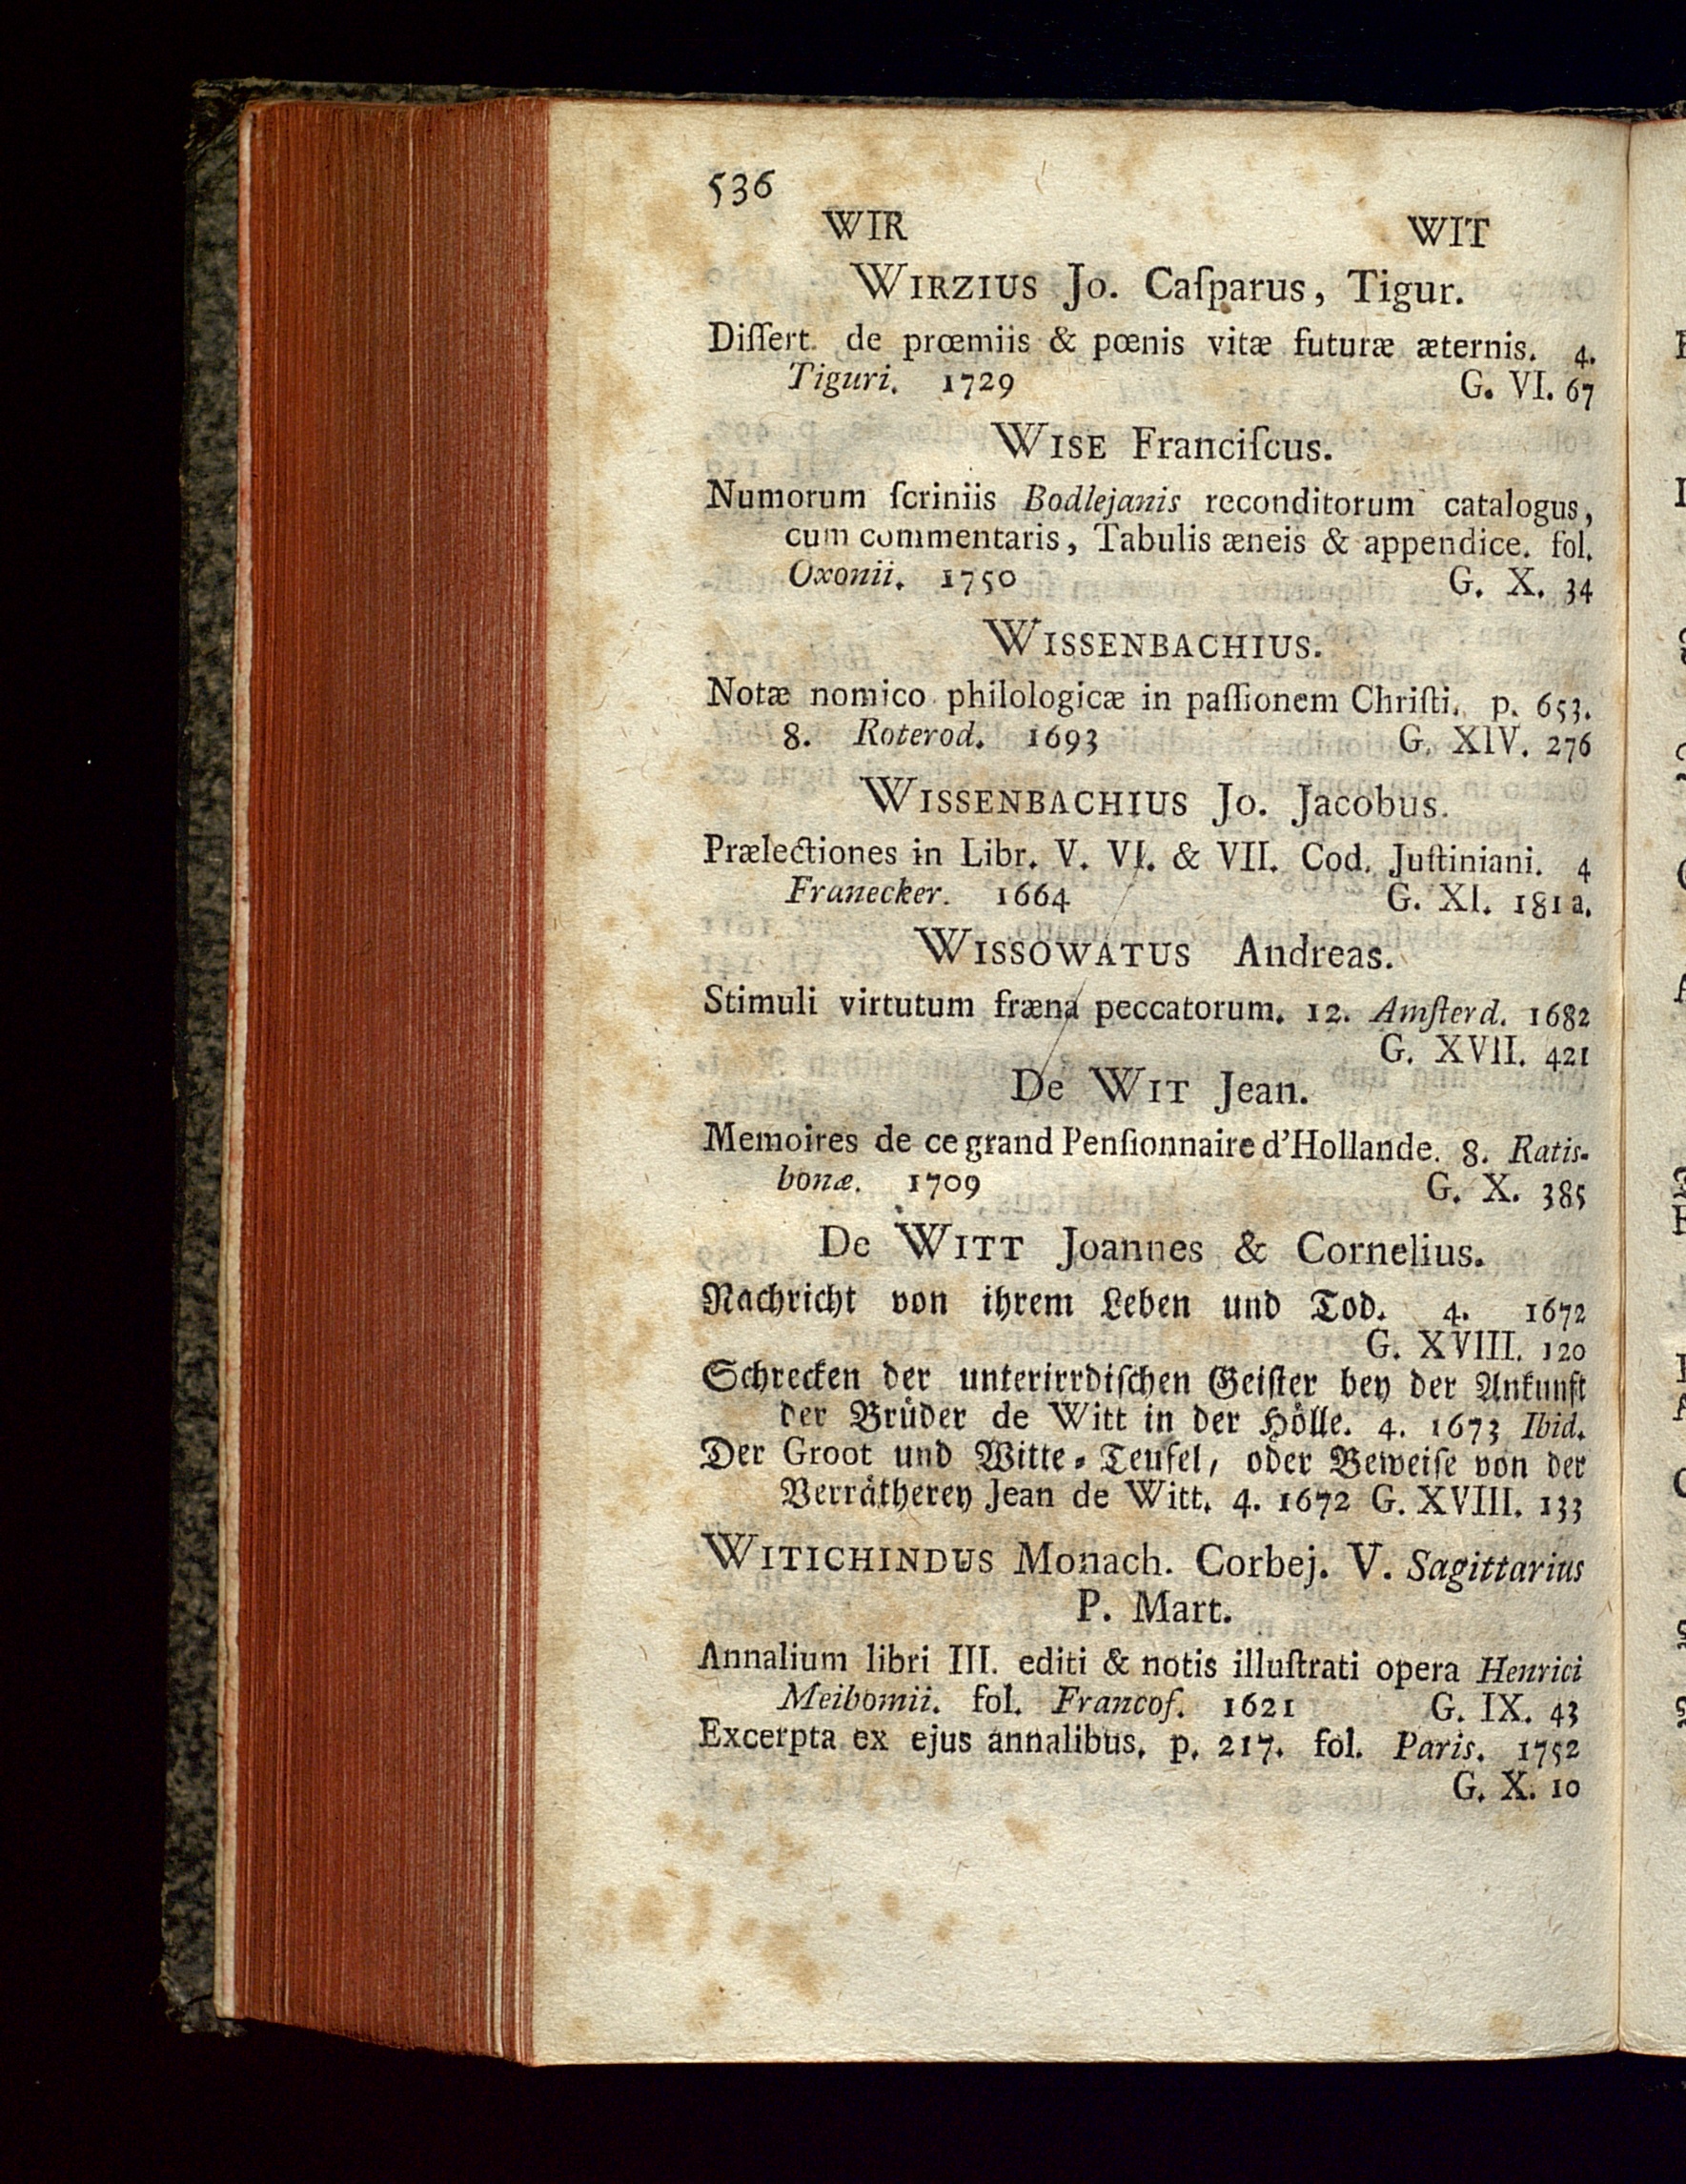 536
WIR WIT
WIRZIUS Jo. Caſparus, Tigur.
Diſſert. de prœmiis & pœnis vitæ futuræ æternis. 4.
Tiguri. 1729 G. VI. 67
WISE Franciſcus.
Numorum ſcriniis Bodlejanis reconditorum catalogus,
cum commentaris, Tabulis æneis & appendice. fol.
Oxonii. 1750 G. X. 34
WISSENBACHIUS.
Notæ nomico philologicæ in paſſionem Chriſti. p. 653.
8. Roterod. 1693 G. XIV. 276
WISSENBACHIUS Jo. Jacobus.
Prælectiones in Libr. V. VI. & VII. Cod. Juſtiniani. 4
Franecker. 1664 G. XI. 181 a.
WISSOWATUS Andreas.
Stimuli virtutum fræna peccatorum. 12. Amſterd. 1682
G. XVII. 421
De WIT Jean.
Memoires de ce grand Penſionnaire d'Hollande. 8. Ratis-
bonæ. 1709 G. X. 385
De WITT Joannes & Cornelius.
Nachricht von ihrem Leben und Tod. 4. 1672
G. XVIII. 120
Schrecken der unterirrdiſchen Geiſter bey der Ankunft
der Brüder de Witt in der Hölle. 4. 1673 Ibid.
Der Groot und Witte-Teufel, oder Beweiſe von der
Verrätherey Jean de Witt. 4. 1672 G. XVIII. 133
WITICHINDUS Monach. Corbej. V. Sagittarius
P. Mart.
Annalium libri III. editi & notis illuſtrati opera Henrici
Meibomii. fol. Francof. 1621 G. IX. 43
Excerpta ex ejus annalibus. p. 217. fol. Paris. 1752
G. X. 10